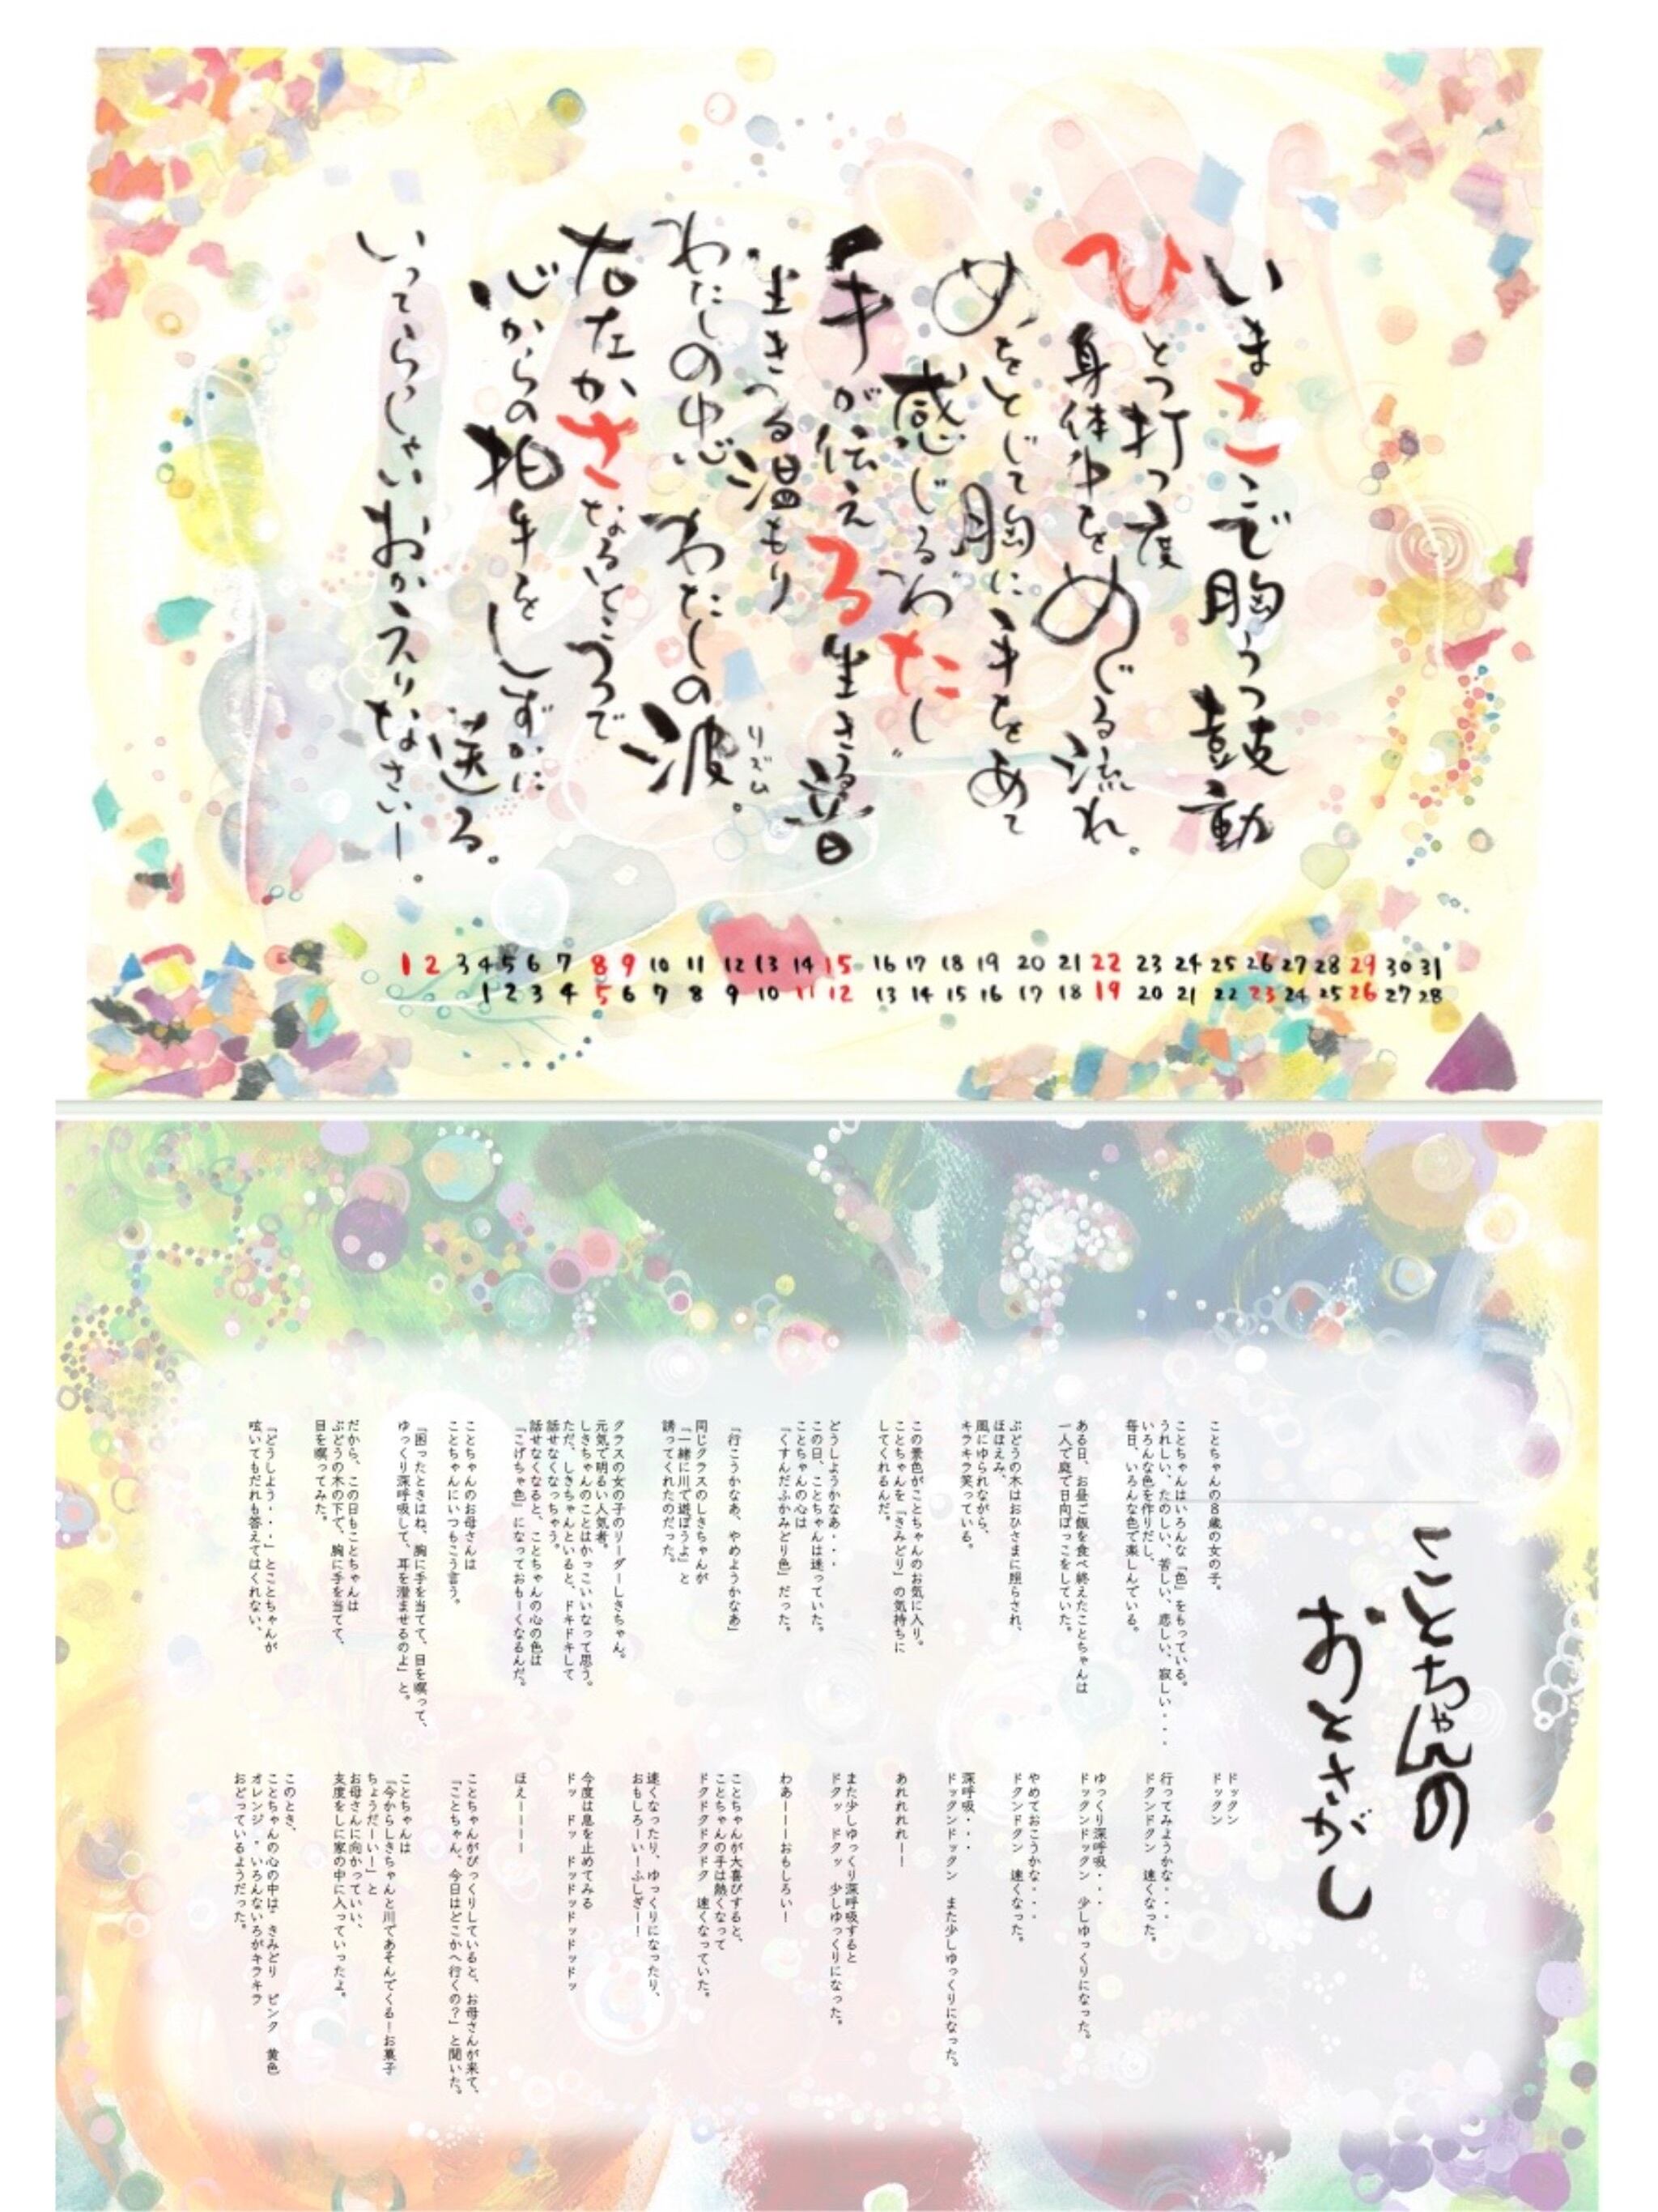 いまここで胸うつ鼓動
ひとつ打つ度
身体中をめぐる流れ。
めをとじて胸に手をあて
感じる“わたし”
手が伝える生きる音
生きつる温もり
わたしの中心わたしの波。
リズム
心からの拍手をしずかに
送る。
いってらっしゃいおかえりなさいー。
1 2 3 4 5 6 7 8 9 10 11 12 13 14 15 16 17 18 19 20 21 22 23 24 25 26 27 28 29 30 31
1 2 3 4 5 6 7 8 9 10 11 12 13 14 15 16 17 18 19 20 21 22 23 24 25 26 27 28
ことちゃんの
おとさがし
ことちゃんの8歳の女の子。
ことちゃんはいろんな「色」をもっている。
うれしい、たのしい、苦しい、悲しい、寂しい・・・
いろんな色を作りだし、
毎日、いろんな色で楽しんでいる。
ある日、お昼ご飯を食べ終えたことちゃんは
一人で庭で日向ぼっこをしていた。
ぶどうの木はおひさまに照らされ、
ほほえみ、
風にゆられながら、
キラキラ笑っている。
この景色がことちゃんのお気に入り。
ことちゃんを『きみどり』の気持ちに
してくれるんだ。
どうしようかなあ・・・
この日、ことちゃんは迷っていた。
ことちゃんの心は
『くすんだふかみどり色』だった。
『行こうかなあ、やめようかなあ』
同じクラスのしきちゃんが
『一緒に川で遊ぼうよ』と
誘ってくれたのだった。
クラスの女の子のリーダーしきちゃん。
元気で明るい人気者。
しきちゃんのことはかっこいいなって思う。
ただ、しきちゃんといると、ドキドキして
話せなくなっちゃう。
話せなくなると、ことちゃんの心の色は
『こげちゃ色』になっておもーくなるんだ。
ことちゃんのお母さんは
ことちゃんにいつもこう言う。
『困ったときはね、胸に手を当てて、目を瞑って、
ゆっくり深呼吸して、耳を澄ませるのよ』と。
だから、この日もことちゃんは
ぶどうの木の下で、胸に手を当てて、
目を瞑ってみた。
『どうしよう・・・』とことちゃんが
呟いてもだれも答えてはくれない、
ドックン
ドックン
行ってみようかな・・・
ドクンドクン 速くなった。
ゆっくり深呼吸・・・
ドックンドックン 少しゆっくりになった。
やめておこうかな・・・
ドクンドクン 速くなった。
深呼吸・・・
ドックンドックン また少しゆっくりになった。
あれれれれー！
また少しゆっくり深呼吸すると
ドクッ ドクッ 少しゆっくりになった。
わあーーーおもしろい！
ことちゃんが大喜びすると、
ことちゃんの手は熱くなって
ドクドクドクドク 速くなっていた。
速くなったり、ゆっくりになったり、
おもしろーいーふしぎー！
今度は息を止めてみる
ドッ ドッ ドッドッドッドッ
ほえーーーー
ことちゃんがびっくりしていると、お母さんが来て、
『ことちゃん、今日はどこかへ行くの？』と聞いた。
ことちゃんは
『今からしきちゃんと川であそんでくるーお菓子
ちょうだーいー』と
お母さんに向かっていい、
支度をしに家の中に入っていったよ。
このとき、
ことちゃんの心の中は、きみどり ピンク 黄色
オレンジ ・いろんないろがキラキラ
おどっているようだった。